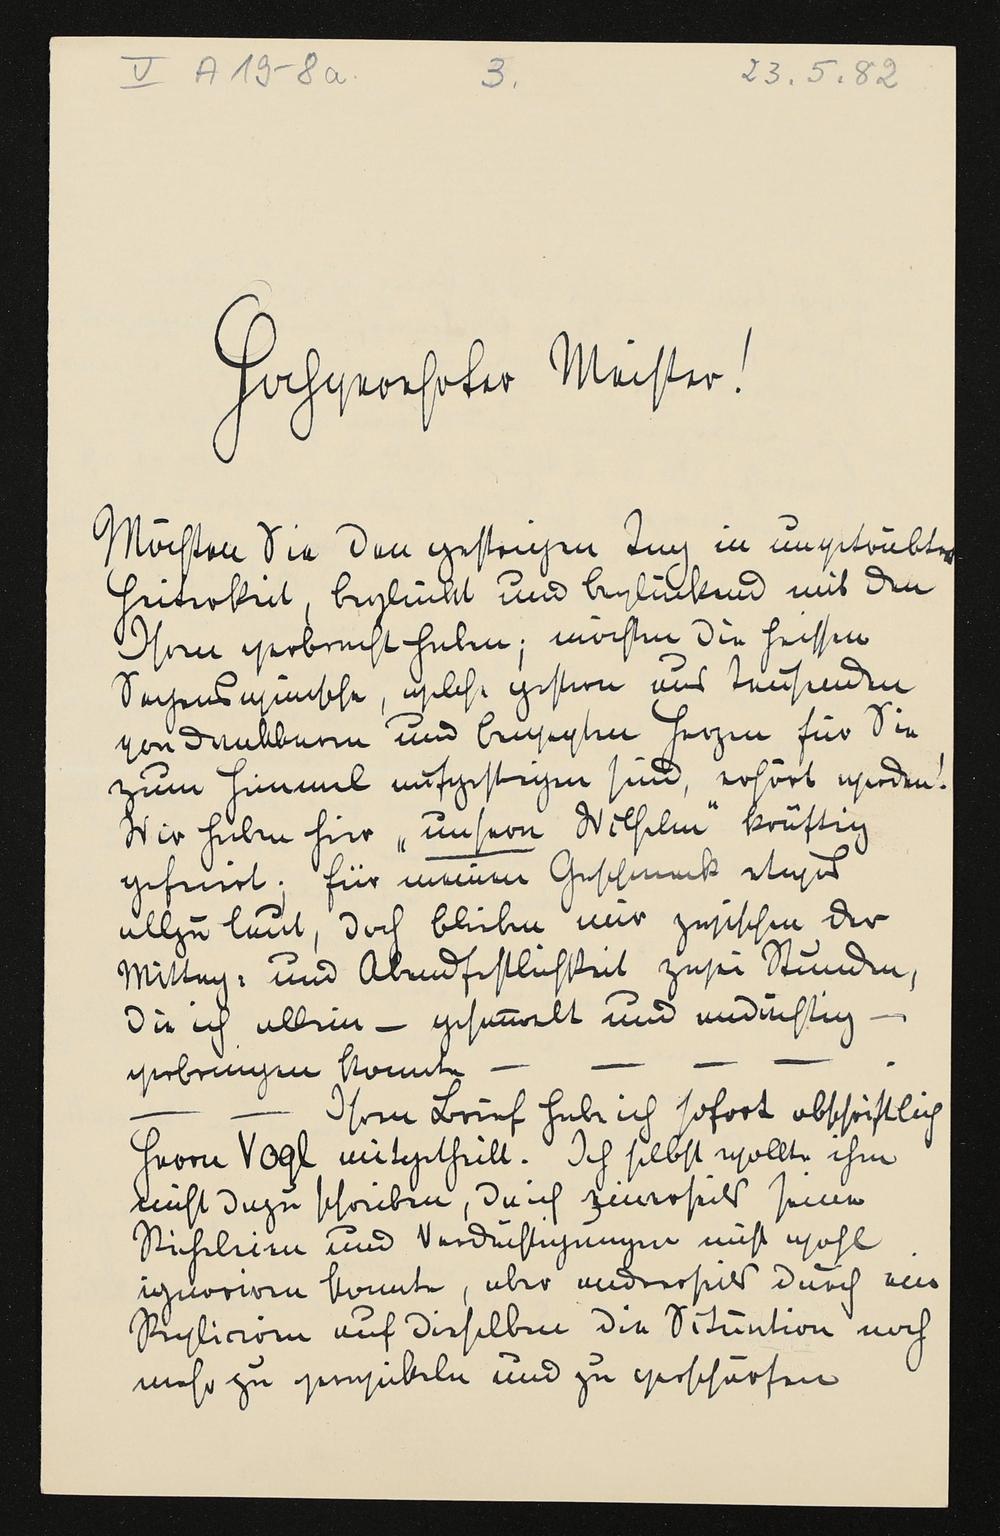 V A 19-8a. 3. 23.5.82
Hochverehrter Meister!
Möchten Sie den gestrigen Tag in ungetrübter
Heiterkeit, beglückt und beglückend mit den
Ihren verbracht haben; möchten die heissen
Segenswünsche, welche gestern aus Tausenden
von dankbaren und bewegten Herzen für Sie
zum Himmel aufgestiegen sind, erhört werden!
Wir haben hier „unsern Wilhelm" kräftig
gefeiert; für meinen Geschmack etwas
allzu laut, doch blieben mir zwischen der
Mittag- und Abendfestlichkeit zwei Stunden,
die ich allein — gesammelt und andächtig —
verbringen konnte — — — — .
— — Ihren Brief habe ich sofort abschriftlich
Herrn Vogl mitgetheilt. Ich selbst wollte ihm
nicht dazu schreiben, da ich einerseits seine
Sticheleien und Verdächtigungen nicht wohl
ignoriren konnte, aber andrerseits durch ein
Repliciren auf dieselben die Situation noch
mehr zu verwickeln und zu verschärfen